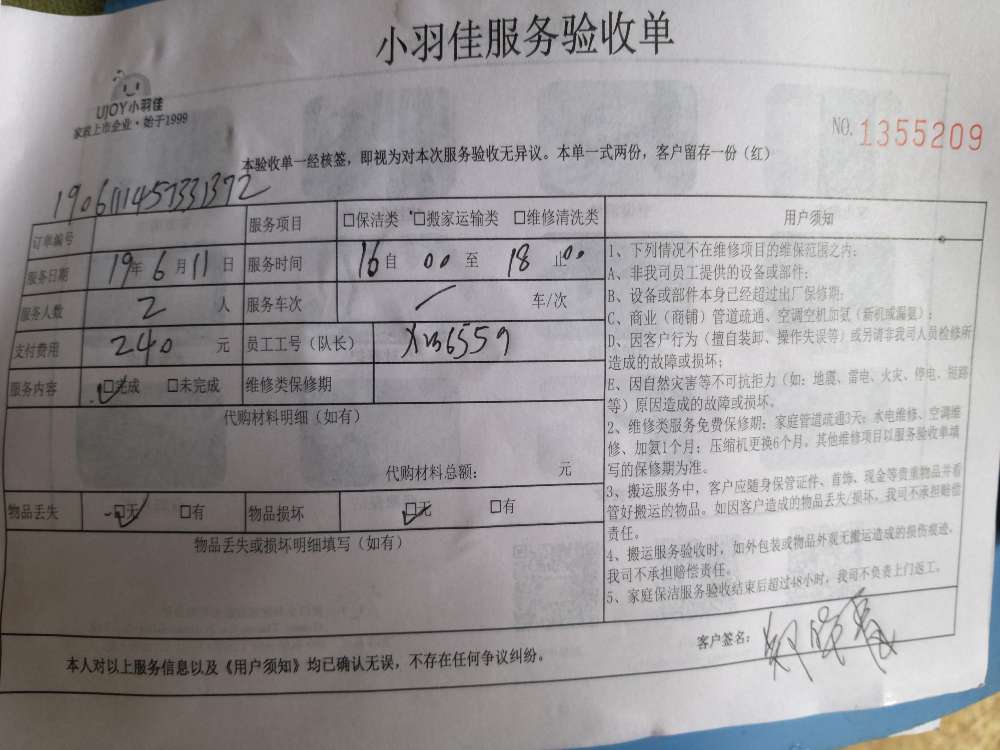 小羽佳服务验收单
UJOY小羽佳
家政上市企业·始于1999
NO.1355209
本验收单一经核签，即视为对本次服务验收无异议。本单一式两份，客户留存一份（红）
1906111457331372
订单编号 服务项目 □保洁类 □搬家运输类 □维修清洗类
服务日期 19年6月11日 服务时间 16自00至18止00
服务人数 2 人 服务车次 / 车/次
支付费用 240 元 员工工号（队长） X236559
服务内容 □完成 □未完成 维修类保修期
代购材料明细（如有）
代购材料总额： 元
物品丢失 □无 □有 物品损坏 □无 □有
物品丢失或损坏明细填写（如有）
用户须知
1、下列情况不在维修项目的维保范围之内：
A、非我司员工提供的设备或部件；
B、设备或部件本身已经超过出厂保修期；
C、商业（商铺）管道疏通、空调空机加氨（新机或漏氨）；
D、因客户行为（擅自装卸、操作失误等）或另请非我司人员检修所
造成的故障或损坏；
E、因自然灾害等不可抗拒力（如：地震、雷电、火灾、停电、短路
等）原因造成的故障或损坏。
2、维修类服务免费保修期：家庭管道疏通3天；水电维修、空调维
修、加氨1个月；压缩机更换6个月，其他维修项目以服务验收单填
写的保修期为准。
3、搬运服务中，客户应随身保管证件、首饰、现金等贵重物品并看
管好搬运的物品。如因客户造成的物品丢失/损坏，我司不承担赔偿
责任。
4、搬运服务验收时，如外包装或物品外观无搬运造成的损伤痕迹，
我司不承担赔偿责任。
5、家庭保洁服务验收结束后超过48小时，我司不负责上门返工。
本人对以上服务信息以及《用户须知》均已确认无误，不存在任何争议纠纷。
客户签名：